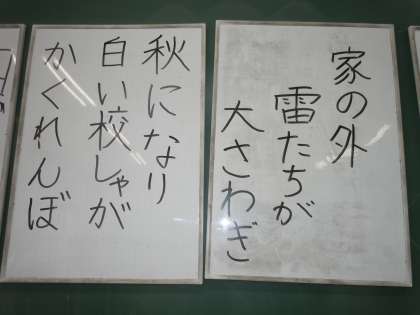 家の外
雷たちが
大さわぎ
秋になり
白い校しゃが
かくれんぼ